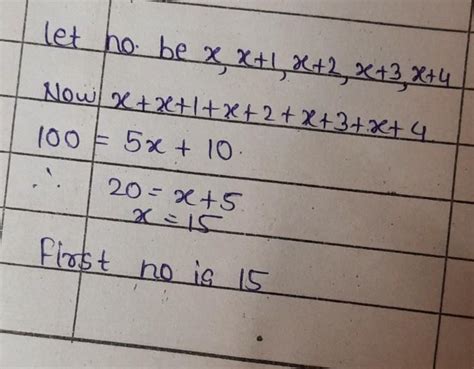 let no. be x, x+1, x+2, x+3, x+4
Now x+x+1+x+2+x+3+x+4
100 = 5x + 10.
∴ 20 = x+5.
x = 15
First no is 15